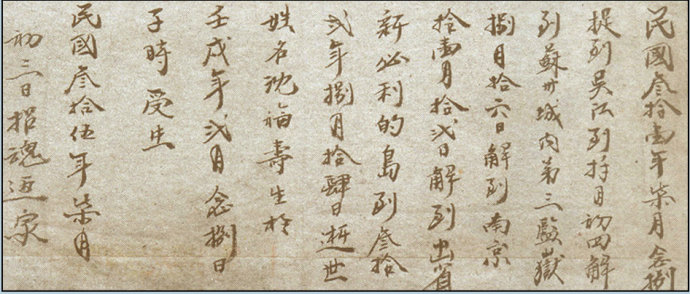 民國叁拾壹年柒月念捌
提到吴江到捌月初四解
到蘇州城内第三監嶽
捌月拾六日解到南京
拾壹月拾弍日解到出省
新必利的島到叁拾
弍年捌月拾肆日逝世
姓名沈福壽生於
壬戌年弍月念捌日
子時受生
民國叁拾伍年柒月
初三日招魂迎家